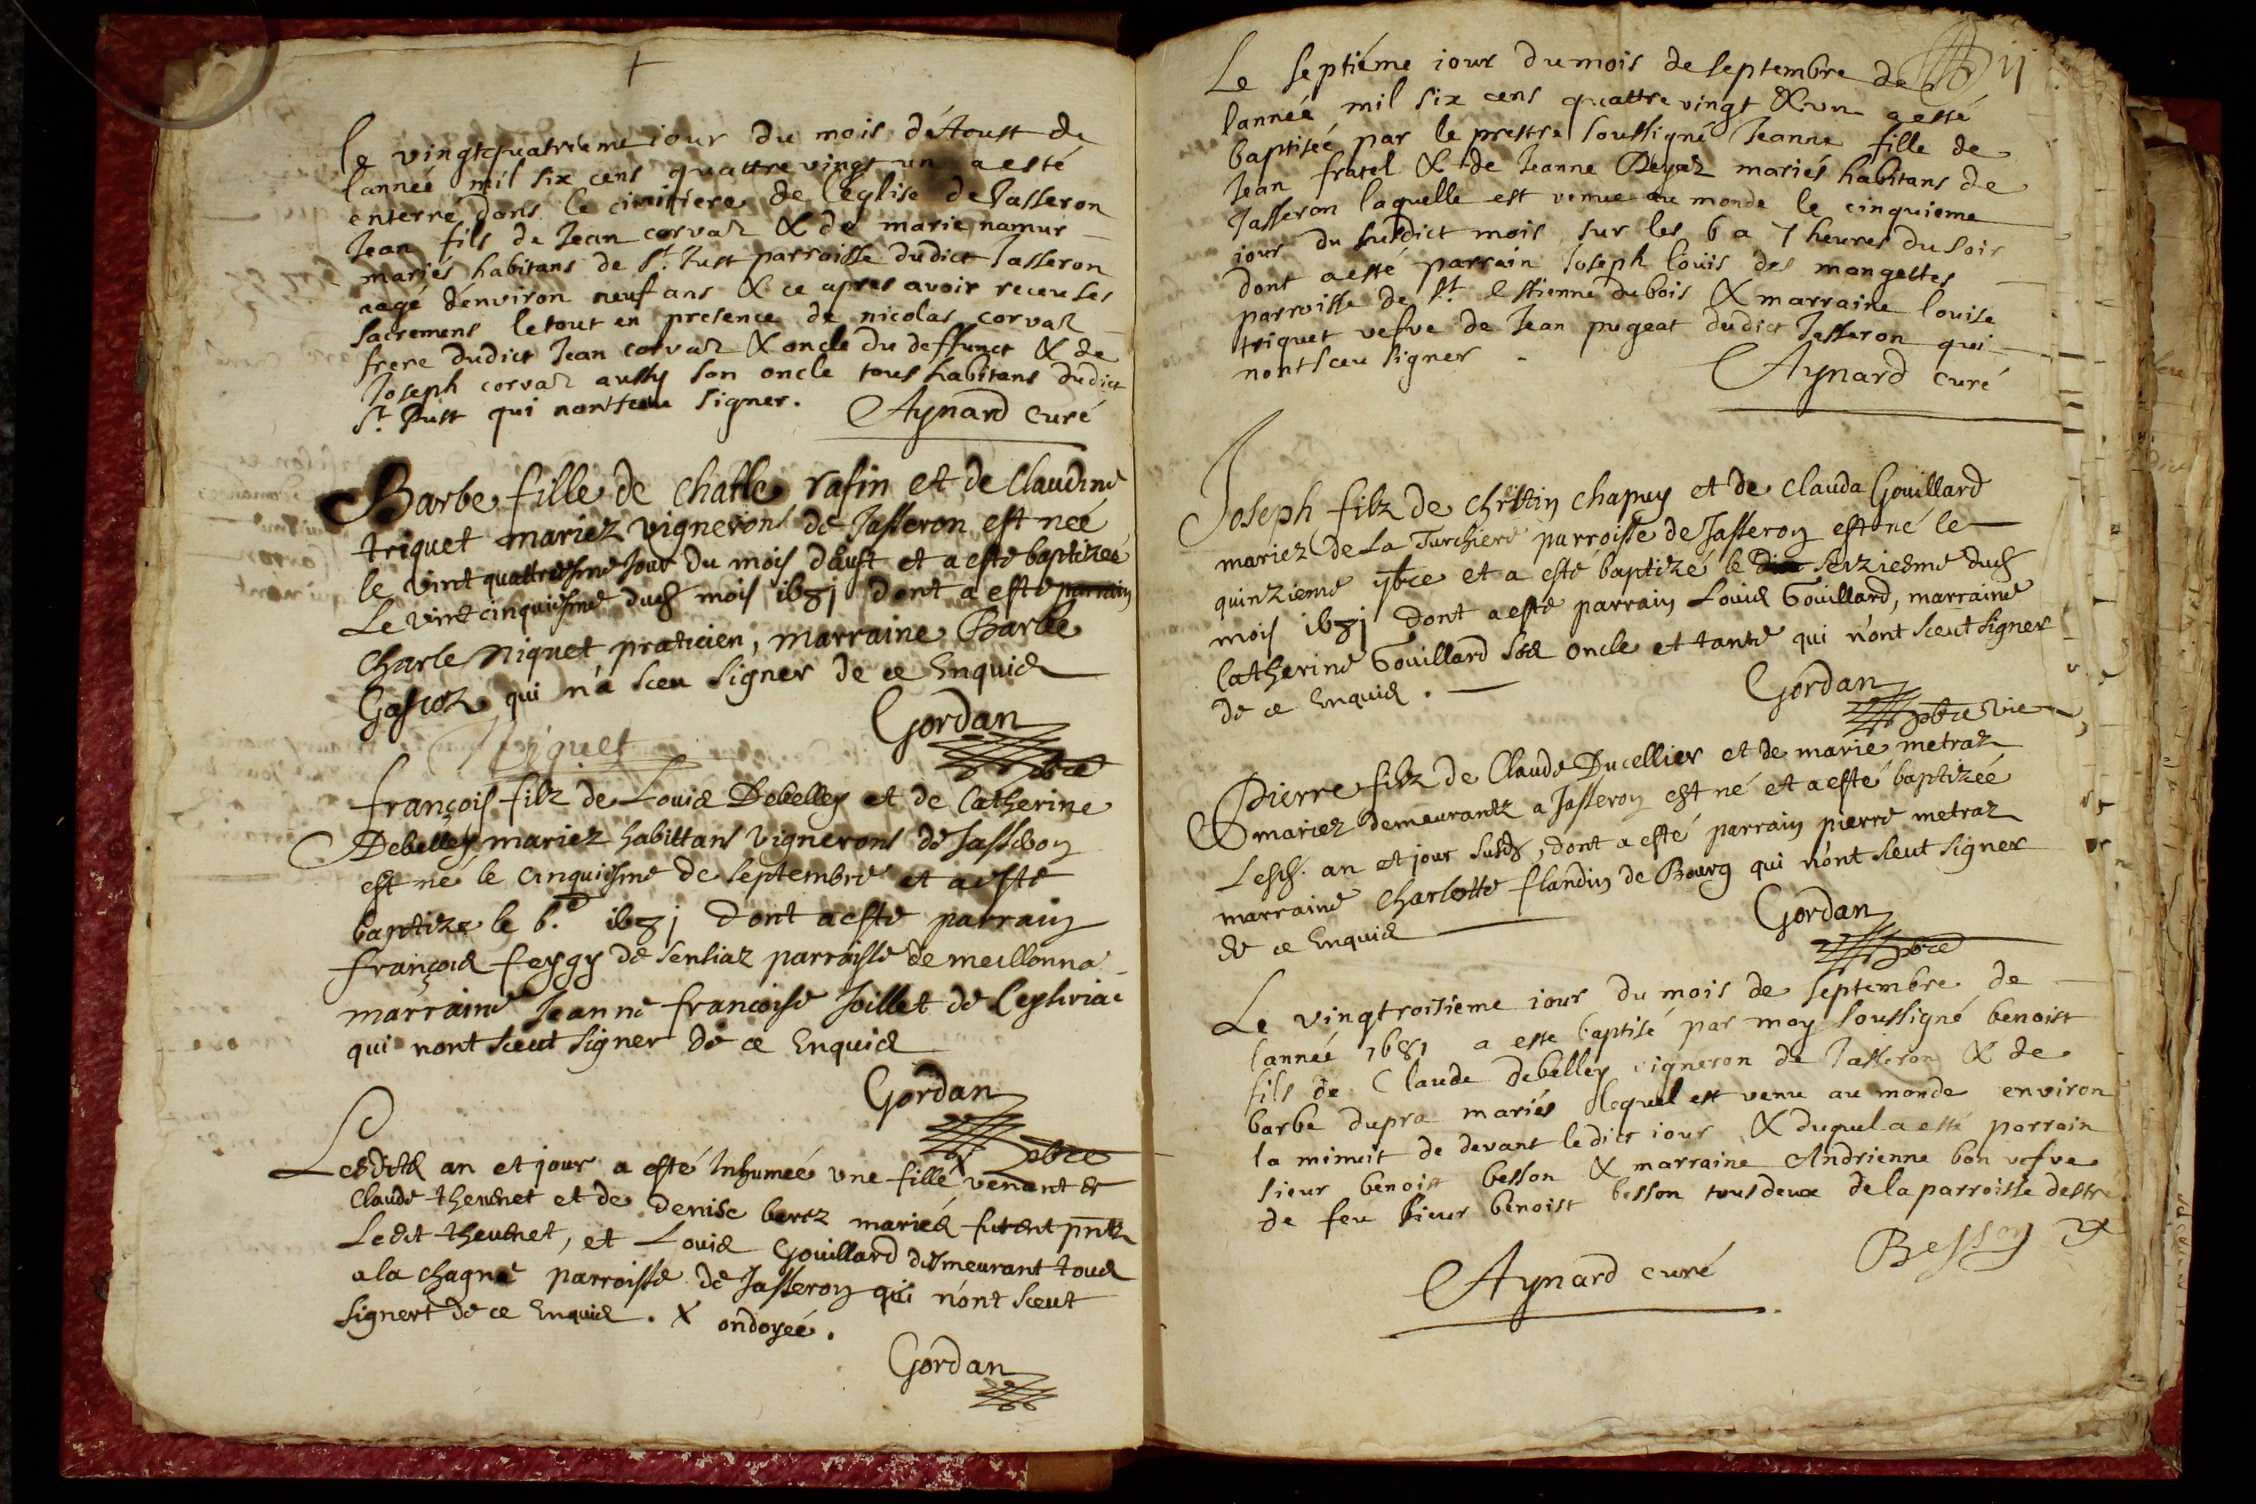 le vingtquatrieme iour du mois d'Aoust de
lanneé mil six cens quattre vingt un a esté
enterré dans le cimitiere de l'eglise de Jasseron
Jean fils de Jean corvaz & de marie namur
mariés habitans de St. Just parroisse dudict Jasseron
aagé d'environ neuf ans & ce apres avoir receu ses
sacremens le tout en presence de nicolas corvaz
frere dudict Jean corvaz & oncle du deffunct & de
Joseph corvaz aussy son oncle tous habitans dudict
St. Just qui nont sceu signer. Aynard curé
Barbe fille de Charle rafin et de Claudine
triquet mariez vignerons de Jasseron est neé
le vint quattriesme Jour du mois d'aust et a esté baptizeé
Le vint cinquiesme dud mois 1681 dont a esté parrain
Charle Niquet praticien, marraine Barbe
qui n'a sceu signer de ce Enquis
Niquet Gordan
pbre
françois filz de Louis Debelley et de Catherine
Debelley mariez habittans vignerons de Jasseron
est né le cinquiesme de septembre et a esté
baptize le 6.e 1681 dont a esté parrain
françois feygy de senliaz parroisse de meillonna
marraine Jeanne francoise Joillet de Ceyseria
qui nont sceut signer de ce Enquis
Gordan
pbre
Lesdits an et jour a esté Inhumeé une fille x venant de
Claude thevenet et de denise berez mariés furent pnts
Ledit thevenet, et Louis Gouillard demeurant tous
a la chagne parroisse de Jasseron qui n'ont sceut
signert de ce Enquis. x ondoyeé.
Gordan
11
Le septiéme iour du mois de septembre de
lanneé mil six cens quattre vingt & un a esté
baptiseé par le prestre soussigné Jeanne fille de
Jean fratel & de Jeanne Beyaz mariés habitans de
Jasseron laquelle est venue au monde le cinquieme
iour du susdict mois sur les 6 a 7 heures du soir
dont a esté parrain Joseph louis des mangettes
parroisse de St. Estienne du bois & marraine louise
triquet vefve de Jean pugeat dudict Jasseron qui
nont sceu signer Aynard curé
Joseph filz de christin chapuy et de clauda Gouillard
mariez de La Turchere parroisse de Jasseron est né le
quinzieme 7bre et a esté baptizé le seiziesme dud
mois 1681 dont a esté parrain Louis Gouillard, marraine
Catherine Gouillard ses oncle et tante qui n'ont sceut signer
de ce Enquis.
Gordan
pbre vic
Pierre filz de Claude Ducellier et de marie metraz
mariez demeurantz a Jasseron est né et a esté baptizéé
Lesd. an et jour susd, dont a esté parrain pierre metraz
marraine Charlotte flandin de Bourg qui n'ont sceut signer
de ce Enquis
Gordan
pbre
Le vingtroisieme iour du mois de septembre de
lanneé 1681 a este baptisé par moy soussigné benoist
fils de Claude debelley vigneron de Jasseron & de
barbe dupra mariés lequel est venu au monde environ
la minuit de devant ledict iour & duquel a esté parrain
sieur benoist besson & marraine Andrienne bon vefve
de feu sieur benoist besson tous deux de la parroisse destre
Aynard curé Besson